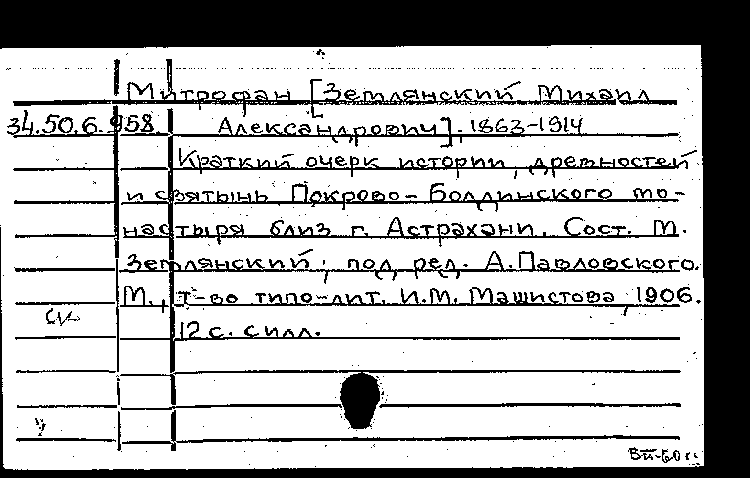 Митрофан [Землянский Михаил
34.50.6.958. Александрович], 1863-1914
Краткий очерк истории, древностей
и святынь Покрово-Болдинского мо-
настыря близ г. Астрахани. Сост. М.
Землянский; под ред. А.Павловского.
М., т-во типо-лит. И.М. Машистова, 1906.
12 с. с илл.